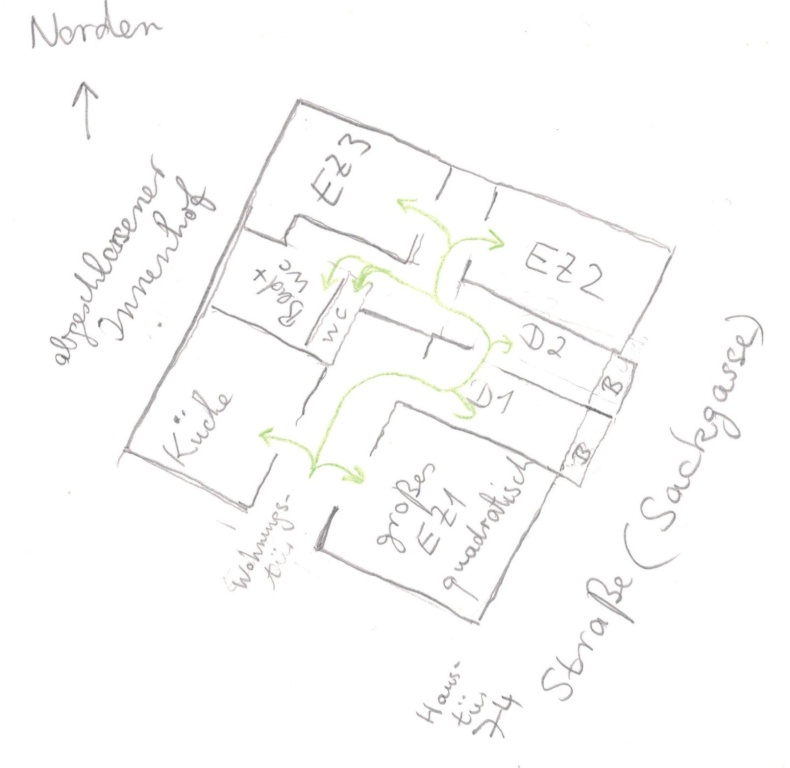 Norden
abgeschlossener
Innenhof
EZ3
EZ2
Bad+
WC
WC
D2
D1
B
B
Küche
großes
EZ1
quadratisch
Wohnungs-
tür
Straße (Sackgasse)
Haus-
tür
74